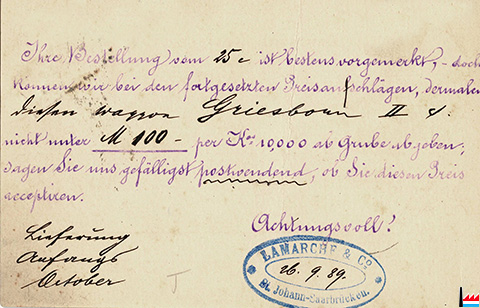 Ihre Bestellung vom 25 c ist bestens vorgemerkt, - doch
können wir bei den fortgesetzten Preisaufschlägen, dermalen
diesen waggon Griesborn II d.
nicht unter M 100- per Kos 10,000 ab Grube abgeben;
sagen Sie uns gefälligst postwendend, ob Sie diesen Preis
acceptiren.
Achtungsvoll!
Lieferung
Anfangs
October
LAMARCHE & Co
26.9.89.
St. Johann-Saarbrücken.